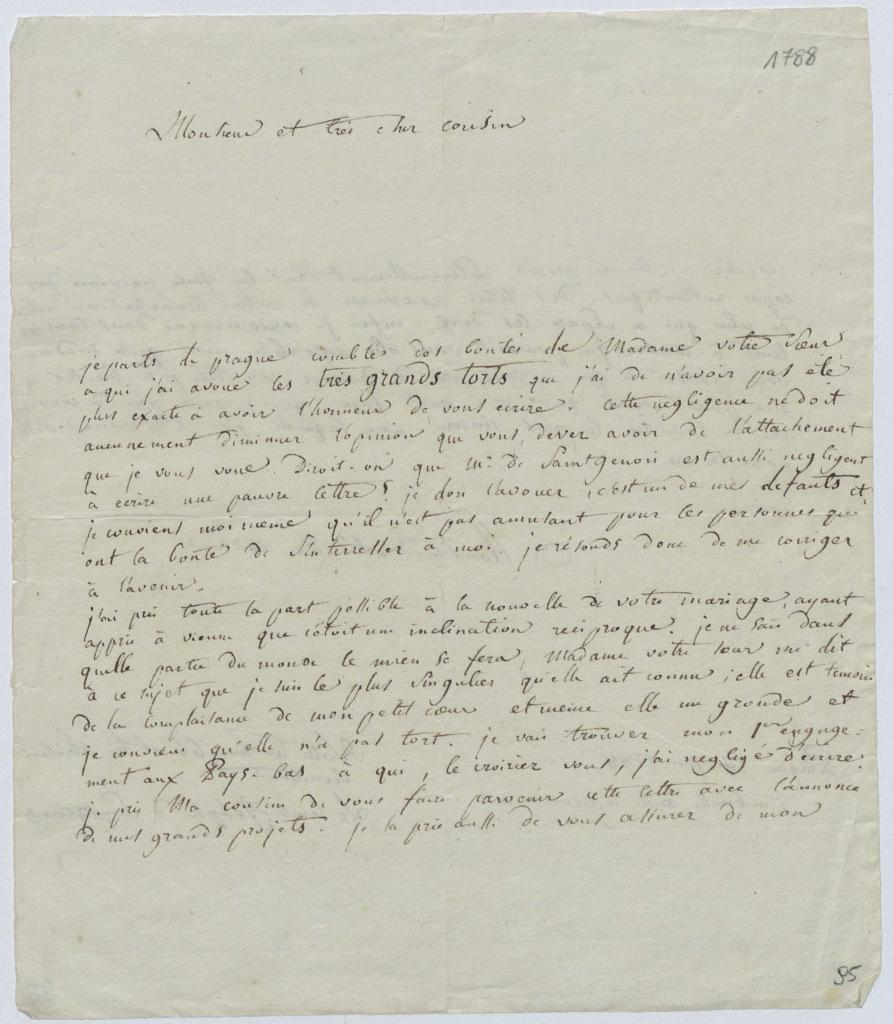 1788
Monsieur et très cher cousin
je parts de prague comblé des bontés de Madame votre Sœur
a qui j'ai avoué les très grands torts que j'ai de n'avoir pas été
plus exacte à avoir l'honneur de vous ecrire. cette negligence ne doit
aucunement diminuer l'opinion que vous devez avoir de l'attachement
que je vous voue. Diroit-on que Mr. de Saintgenois est aussi negligent
à ecrire une pauvre lettre? je dois l'avouer, c'est un de mes defauts et
je conviens moi meme qu'il n'est pas amusant pour les personnes qui
ont la bonté de s'interresser à moi. je résouds donc de me corriger
à l'avenir.
j'ai pris toute la part possible à la nouvelle de votre mariage, ayant
appris à vienne que c'étoit une inclination reciproque. je ne sais dans
quelle partie du monde le mien se fera, Madame votre sœur me dit
à ce sujet que je suis le plus singulier qu'elle ait connu; elle est temoin
de la complaisance de mon petit cœur et meme elle me gronde et
je conviens qu'elle n'a pas tort. je vais trouver mon 1er engage-
ment aux Pays-bas à qui, le croiriez vous, j'ai negligé d'écrire.
je prie Ma cousine de vous faire parvenir cette lettre avec l'annonce
de mes grands projets. je la prie aussi de vous assurer de mon
95